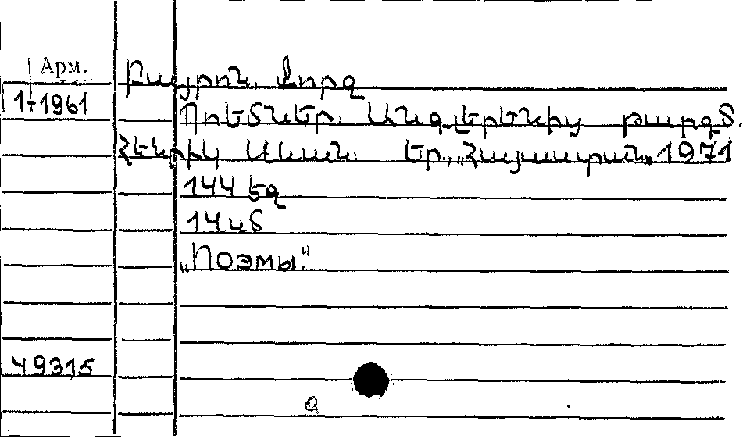 Арм.
Բայրոն. Ջորջ
1-1961
Պոեմներ. Անգլերենից թարգմ.
Հենրիկ Սևան. Եր., „Հայաստան„ 1971
144 էջ
14 սմ
„Поэмы."
49315